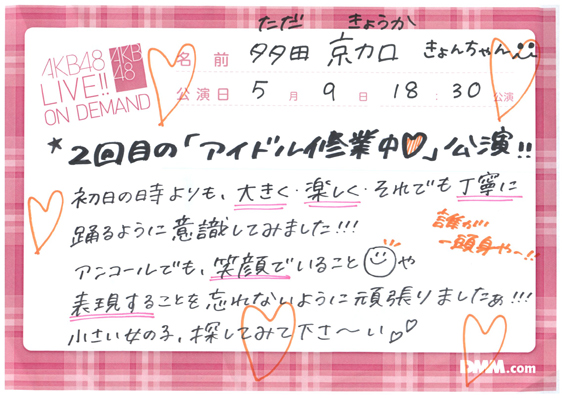 AKB48
LIVE!!
ON DEMAND
AKB
48
ただ きょうか
名前 多田 京加 きょんちゃん
公演日 5月 9日 18:30公演
*2回目の「アイドル修業中♡」公演!!
初日の時よりも、大きく・楽しく・それでも丁寧に
踊るように意識してみました!!!
誰が
一頭身や〜!!
アンコールでも、笑顔でいることや
表現することを忘れないように頑張りましたぁ!!!
小さい女の子、探してみて下さ〜い♡♡
DMM.com